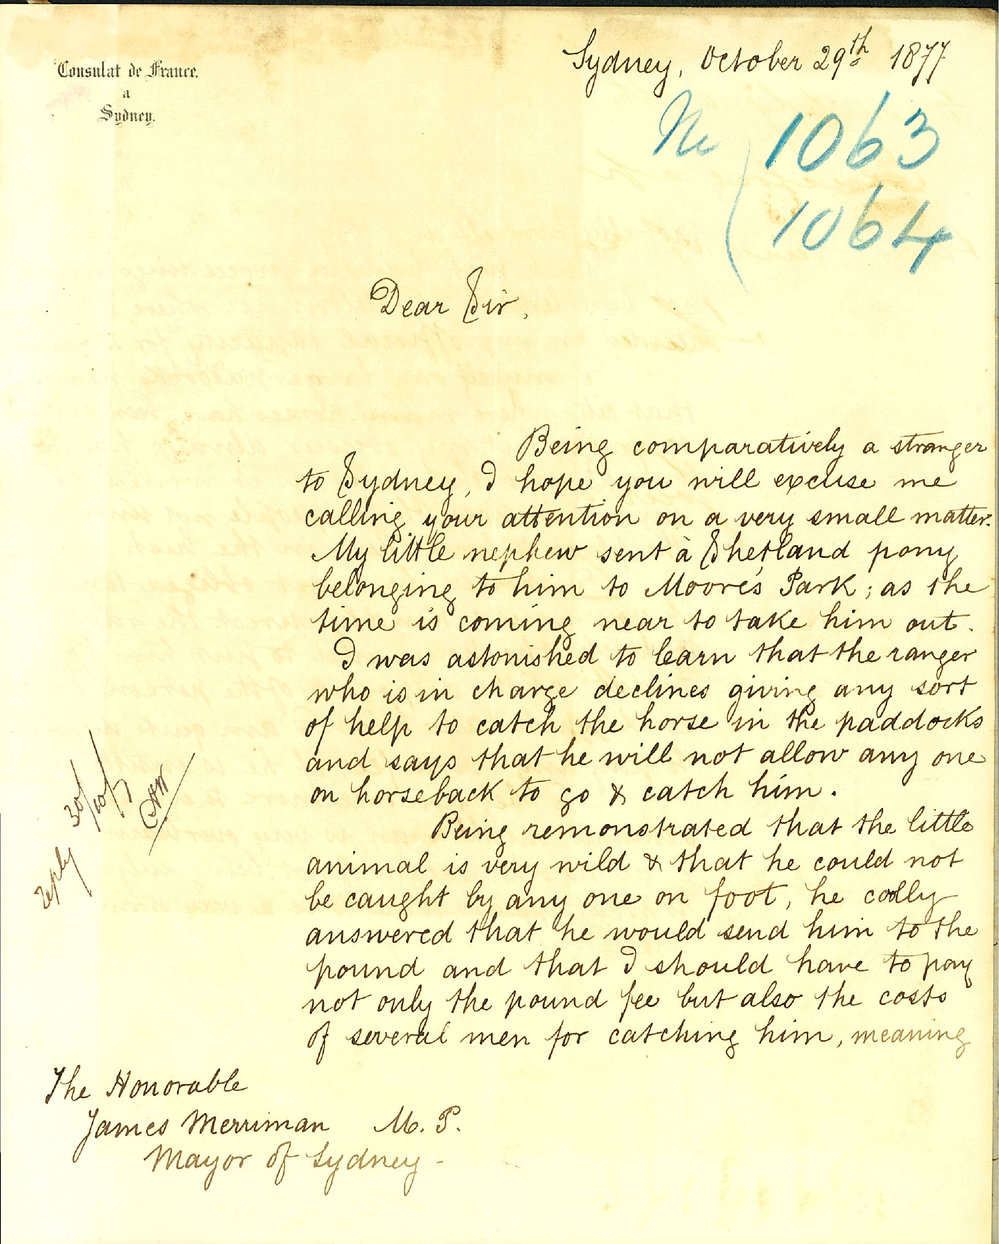 Consulat de France.
a
Sydney.
Sydney, October 29th 1877
No 1063
1064
Dear Sir,
Being comparatively a stranger
to Sydney, I hope you will excuse me
calling your attention on a very small matter.
My little nephew sent à Shetland pony
belonging to him to Moore's Park; as the
time is coming near to take him out.
I was astonished to learn that the ranger
who is in charge declines giving any sort
of help to catch the horse in the paddocks
and says that he will not allow any one
on horseback to go & catch him.
Being remonstrated that the little
animal is very wild & that he could not
be caught by any one on foot, he coolly
answered that he would send him to the
pound and that I should have to pay
not only the pound fee but also the costs
of several men for catching him, meaning
reply 30/10/7
The Honorable
James Merriman M. P.
Mayor of Sydney -